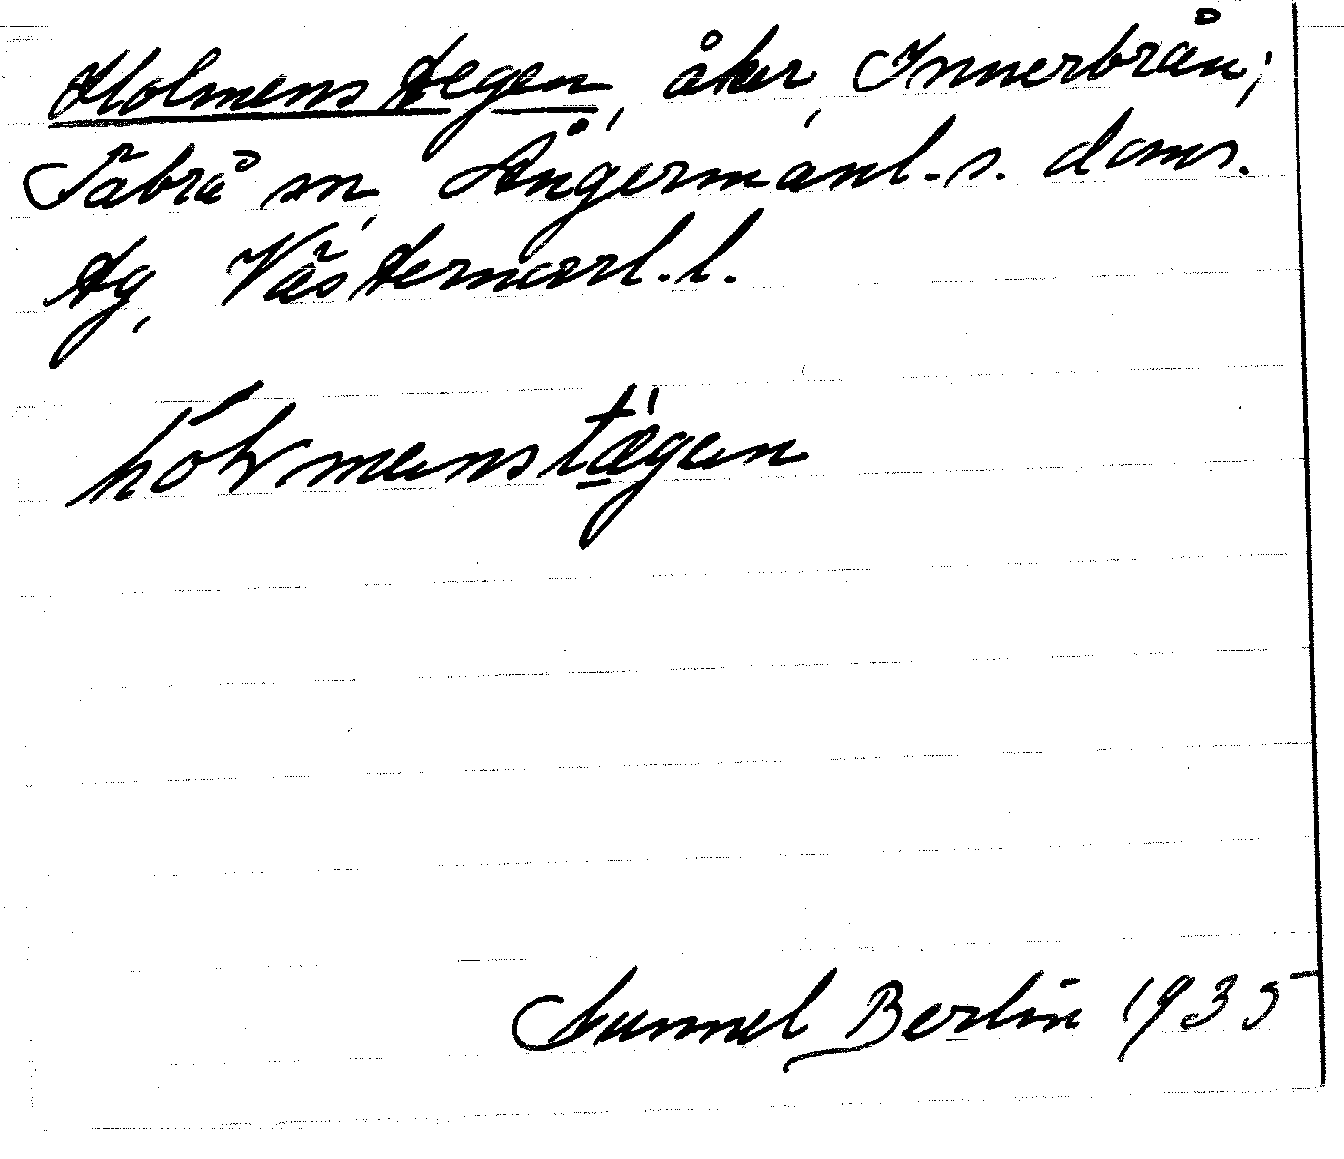 Holmenstegen, åker, Innerbrån,
Säbrå sn, Ångermanl. s. doms.
tg, Västernorrl. l.
Gunnel Berlin 1935